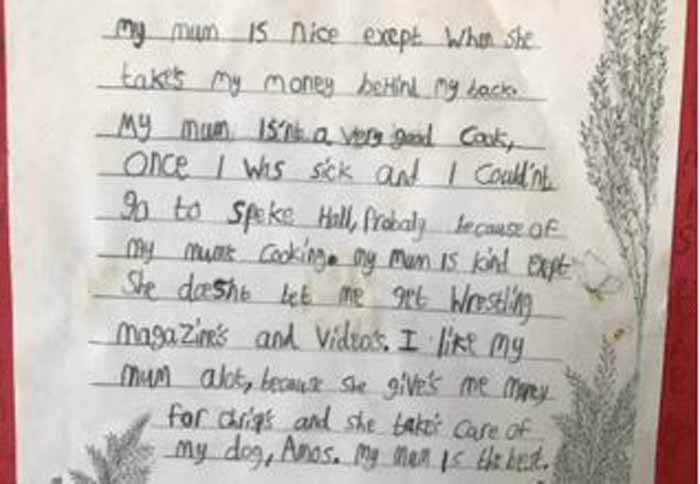 my mum is nice exept when she
take's my money behind my back.
My mum is'nt a very good Cook,
Once I was sick and I Could'nt
go to Speke Hall, Probaly because of
my mums cooking. my mum is kind exept
She doesn't let me get Wrestling
magazine's and Video's. I like my
mum alot, because she give's me money
for chrip's and she take's care of
my dog, Amos. my mum is the best.